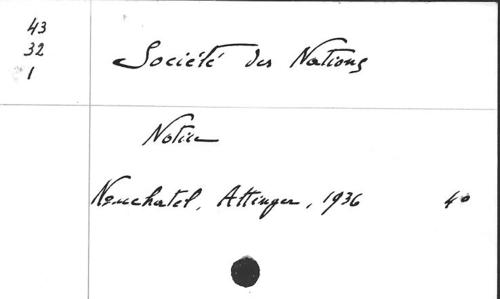 43
32
1
Société des Nations
Notice
Neuchatel, Attinger, 1936 4°